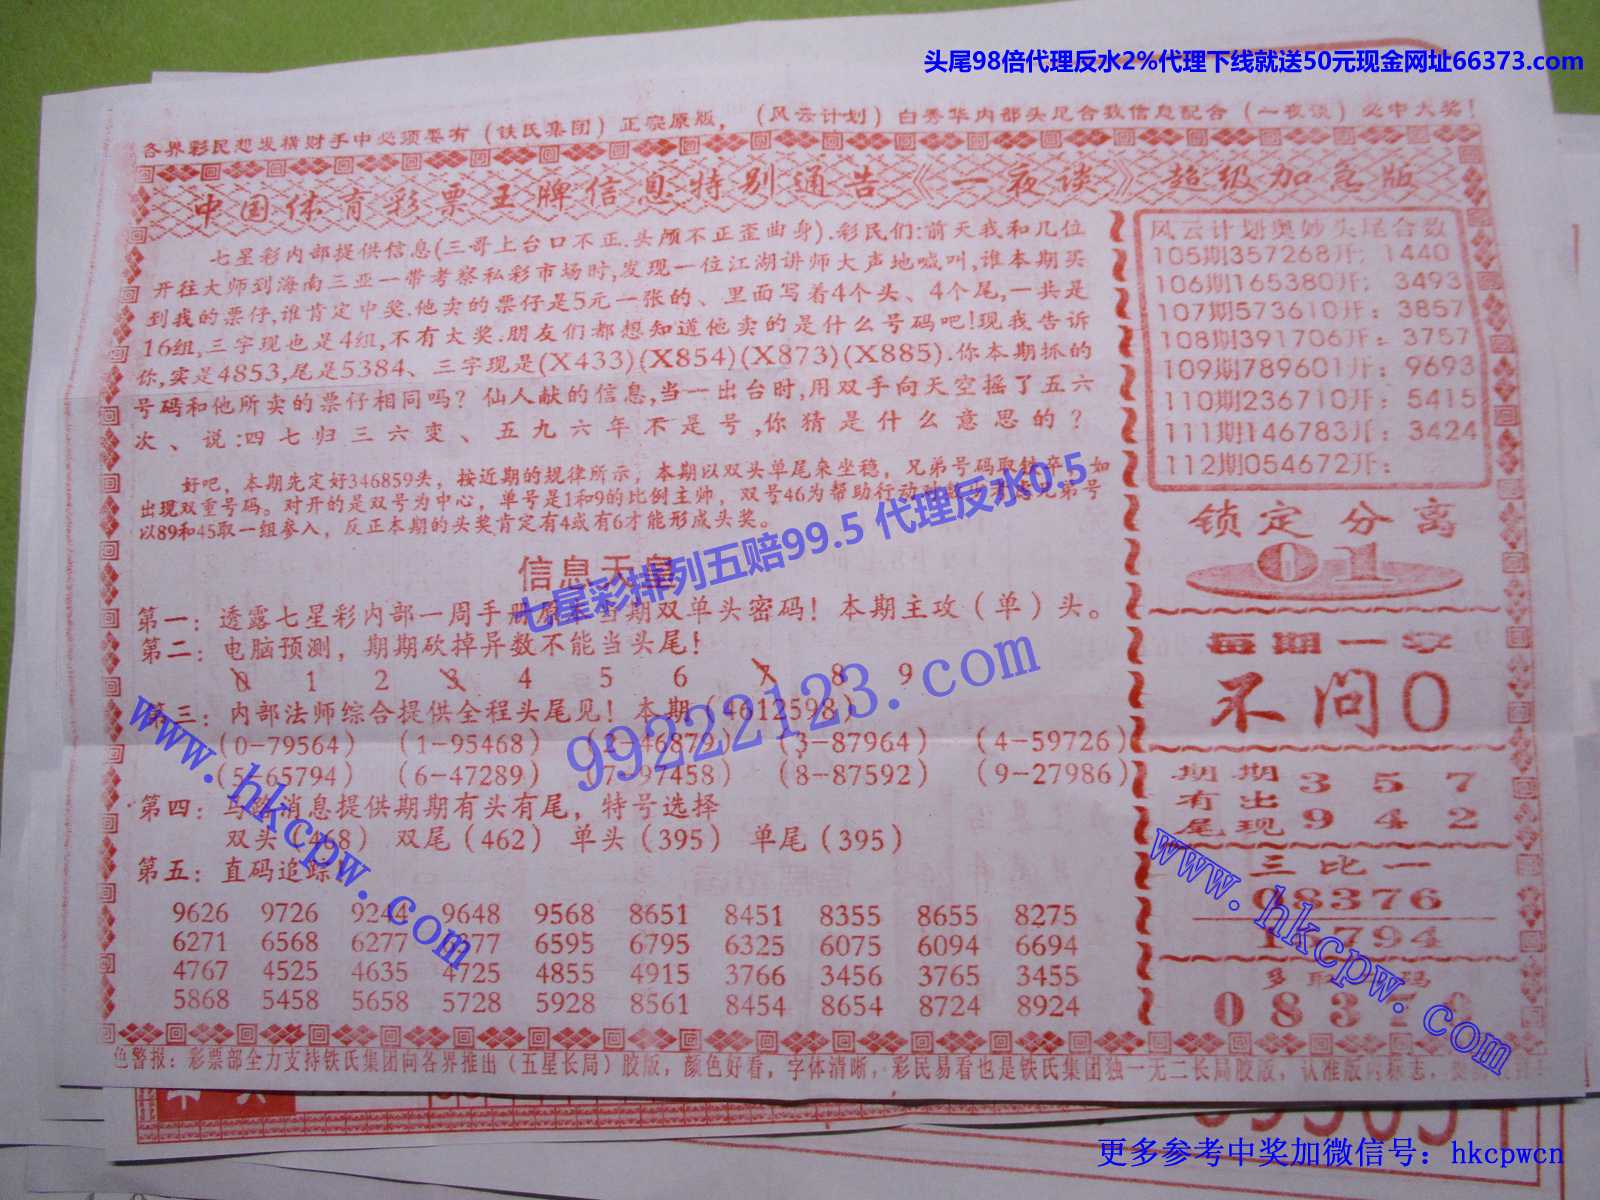 头尾98倍代理反水2%代理下线就送50元现金网址66373.com
各界彩民想发横财手中必须要有（铁氏集团）正宗原版，（风云计划）白秀华内部头尾合数信息配合（一夜谈）必中大奖！
中国体育彩票王牌信息特别通告《一夜谈》超级加急版
七星彩内部提供信息(三哥上台口不正.头颅不正歪曲身).彩民们:前天我和几位
开往大师到海南三亚一带考察私彩市场时,发现一位江湖讲师大声地喊叫,谁本期买
到我的票仔,谁肯定中奖.他卖的票仔是5元一张的、里面写着4个头、4个尾,一共是
16组,三字现也是4组,不有大奖.朋友们都想知道他卖的是什么号码吧!现我告诉
你,实是4853,尾是5384、三字现是(X433)(X854)(X873)(X885).你本期抓的
号码和他所卖的票仔相同吗？仙人献的信息,当一出台时,用双手向天空摇了五六
次、说:四七归三六变、五九六年不是号,你猜是什么意思的？
好吧，本期先定好346859头，按近期的规律所示，本期以双头单尾来坐稳，兄弟号码取 如
出现双重号码。对开的是双号为中心，单号是1和9的比例主师，双号46为帮助行动 弟号
以89和45取一组参入，反正本期的头奖肯定有4或有6才能形成头奖。
七星彩排列五赔99.5 代理反水0.5
信息天皇
第一：透露七星彩内部一周手册原 当期双单头密码！本期主攻（单）头。
第二：电脑预测，期期砍掉异数不能当头尾！
0 1 2 3 4 5 6 7 8 9
第三：内部法师综合提供全程头尾见！本期（4612598）
（0-79564）（1-95468）（2-46879）（3-87964）（4-59726）
（5-65794）（6-47289）（7-97458）（8-87592）（9-27986）
第四：马经消息提供期期有头有尾，特号选择
双头（468） 双尾（462） 单头（395） 单尾（395）
第五：直码追踪
9626 9726 9244 9648 9568 8651 8451 8355 8655 8275
6271 6568 6277 6377 6595 6795 6325 6075 6094 6694
4767 4525 4635 4725 4855 4915 3766 3456 3765 3455
5868 5458 5658 5728 5928 8561 8454 8654 8724 8924
风云计划奥妙头尾合数
105期357268开: 1440
106期165380开: 3493
107期573610开: 3857
108期391706开: 3757
109期789601开: 9693
110期236710开: 5415
111期146783开: 3424
112期054672开:
锁定分离
01
每期一字
不问0
期期 3 5 7
有出
尾现 9 4 2
三比一
98376
794
多
0837
99222123.com
www.hkcpw.com
www.hkcpw.com
色警报：彩票部全力支持铁氏集团向各界推出（五星长局）胶版，颜色好看，字体清晰，彩民易看也是铁氏集团独一无二长局胶版，认准版内标志，
更多参考中奖加微信号：hkcpwcn